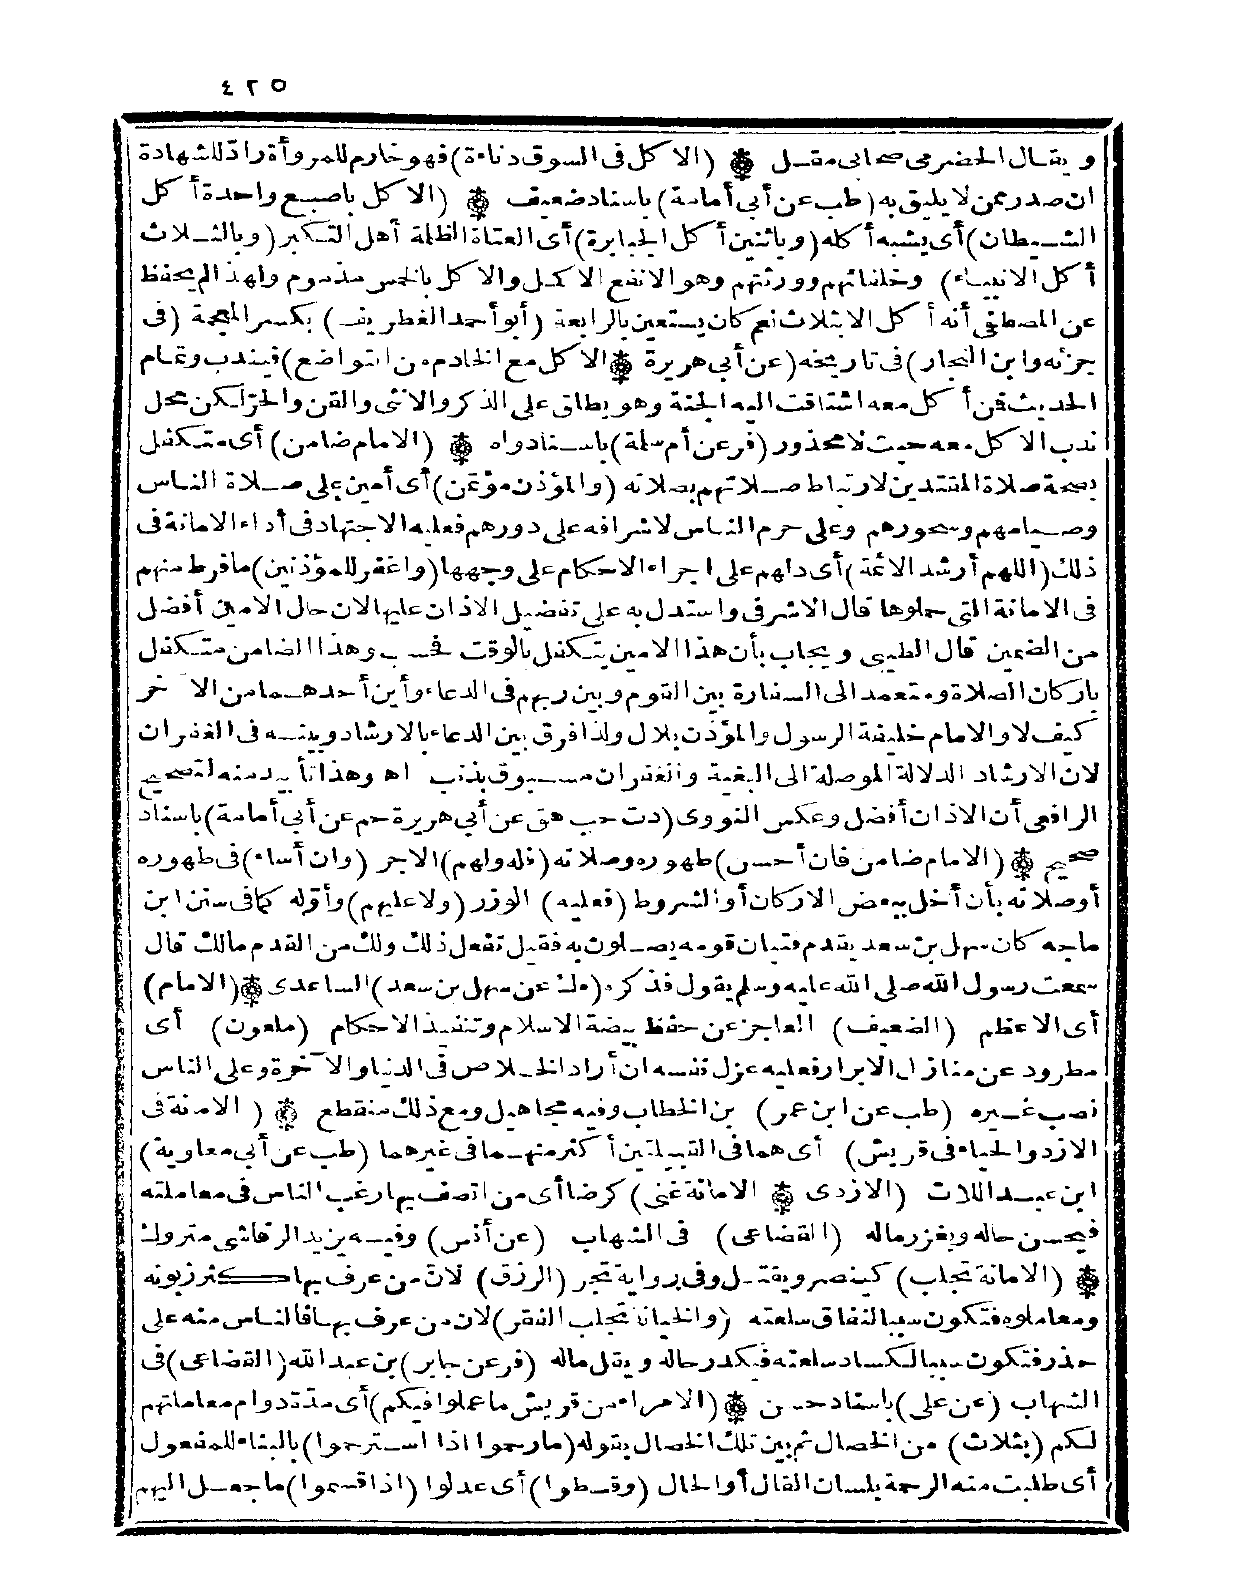 ٤٢٥
ويقال الحضرمي صحابي مقل * (الاكل في السوق دناءة) فهو خارم للمروأة رادّ للشهادة
ان صدر ممن لا يليق به (طب عن أبي أمامة) باسناد ضعيف * (الاكل باصبع واحدة أكل
الشيطان) أى يشبه أكله (وباثنين أكل الجبابرة) أى العتاة الظلمة أهل التكبر (وبالثلاث
أكل الانبياء) وخلفائهم وورثتهم وهو الانفع الاكمل والاكل بالخمس مذموم ولهذا لم يحفظ
عن المصطفى أنه أكل الا بثلاث نعم كان يستعين بالرابعة (أبو أحمد الغطريف) بكسر المعجمة (فى
جزئه وابن النجار) فى تاريخه (عن أبى هريرة * الاكل مع الخادم من التواضع) فيندب وتمام
الحديث فمن أكل معه اشتاقت اليه الجنة وهو يطلق على الذكر والانثى والقن والحرّ لكن محل
ندب الاكل معه حيث لا محذور (فر عن أم سلمة) باسناد واه * (الامام ضامن) أى متكفل
بصحة صلاة المقتدين لارتباط صلاتهم بصلاته (والمؤذن مؤتمن) أى أمين على صلاة الناس
وصيامهم وسحورهم وعلى حرم الناس لاشرافه على دورهم فعليه الاجتهاد فى أداء الامانة فى
ذلك (اللهم أرشد الائمة) أى دلهم على اجراء الاحكام على وجهها (واغفر للمؤذنين) ما فرط منهم
فى الامانة التى حملوها قال الاشرفى واستدل به على تفضيل الاذان عليها لان حال الامين أفضل
من الضمين قال الطيبى ويجاب بأن هذا الامين يتكفل بالوقت فحسب وهذا الضامن متكفل
باركان الصلاة ومتعمد الى السفارة بين القوم وبين ربهم فى الدعاء وأين أحدهما من الآخر
كيف لا والامام خليفة الرسول والمؤذن بلال ولذا فرق بين الدعاء بالارشاد وبينه فى الغفران
لان الارشاد الدلالة الموصلة الى البغية والغفران مسبوق بذنب اه وهذا تأييد منه لتصحيح
الرافعى أن الاذان أفضل وعكس النووى (د ت حب هق عن أبى هريرة حم عن أبى أمامة) باسناد
صحيح * (الامام ضامن فان أحسن) طهوره وصلاته (فله ولهم) الاجر (وان أساء) فى طهوره
أو صلاته بأن أخل ببعض الاركان أو الشروط (فعليه) الوزر (ولا عليهم) وأوّله كما فى سنن ابن
ماجه كان سهل بن سعد يقدم فتيان قومه يصلون به فقيل تفعل ذلك ولك من القدم مالك قال
سمعت رسول الله صلى الله عليه وسلم يقول فذكره (ه ك عن سهل بن سعد) الساعدى * (الامام)
أى الاعظم (الضعيف) العاجز عن حفظ بيضة الاسلام وتنفيذ الاحكام (ملعون) أى
مطرود عن منازل الابرار فعليه عزل نفسه ان أراد الخلاص فى الدنيا والآخرة وعلى الناس
نصب غيره (طب عن ابن عمر) بن الخطاب وفيه مجاهيل ومع ذلك منقطع * (الامنة فى
الازد والحياء فى قريش) أى هما فى القبيلتين أكثر منهما فى غيرهما (طب عن أبى معاوية)
ابن عبد اللات (الازدى * الامانة غنى) كرضا أى من اتصف بها رغب الناس فى معاملته
فيحسن حاله ويغزر ماله (القضاعى) فى الشهاب (عن أنس) وفيه يزيد الرقاشى متروك
* (الامانة تجلب) كينصر ويقتل وفى رواية تجر (الرزق) لانّ من عرف بها كثر زبونه
ومعاملوه فتكون سببا لنفاق سلعته (والخيانة تجلب الفقر) لان من عرف بها فالناس منه على
حذر فتكون سببا لكساد سلعته فيكدر حاله ويقل ماله (فر عن جابر) بن عبد الله (القضاعى) فى
الشهاب (عن على) باسناد حسن * (الامراء من قريش ما عملوا فيكم) أى مدّة دوام معاملتهم
لكم (بثلاث) من الخصال ثم بين تلك الخصال بقوله (ما رحموا اذا استرحموا) بالبناء للمفعول
أى طلبت منه الرحمة بلسان القال أو الحال (وقسطوا) أى عدلوا (اذا قسموا) ما جعل اليهم